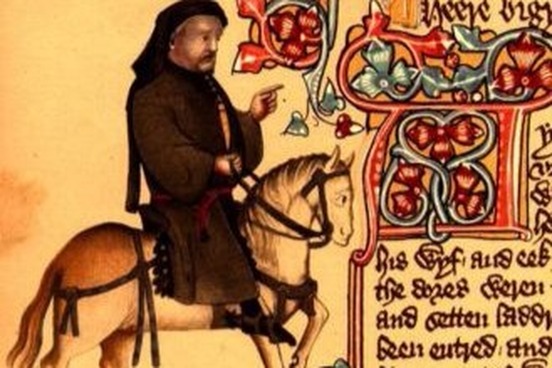 Heere bigy
A
his Wyf and eek
the dores weren
and setten laddr
been entred and